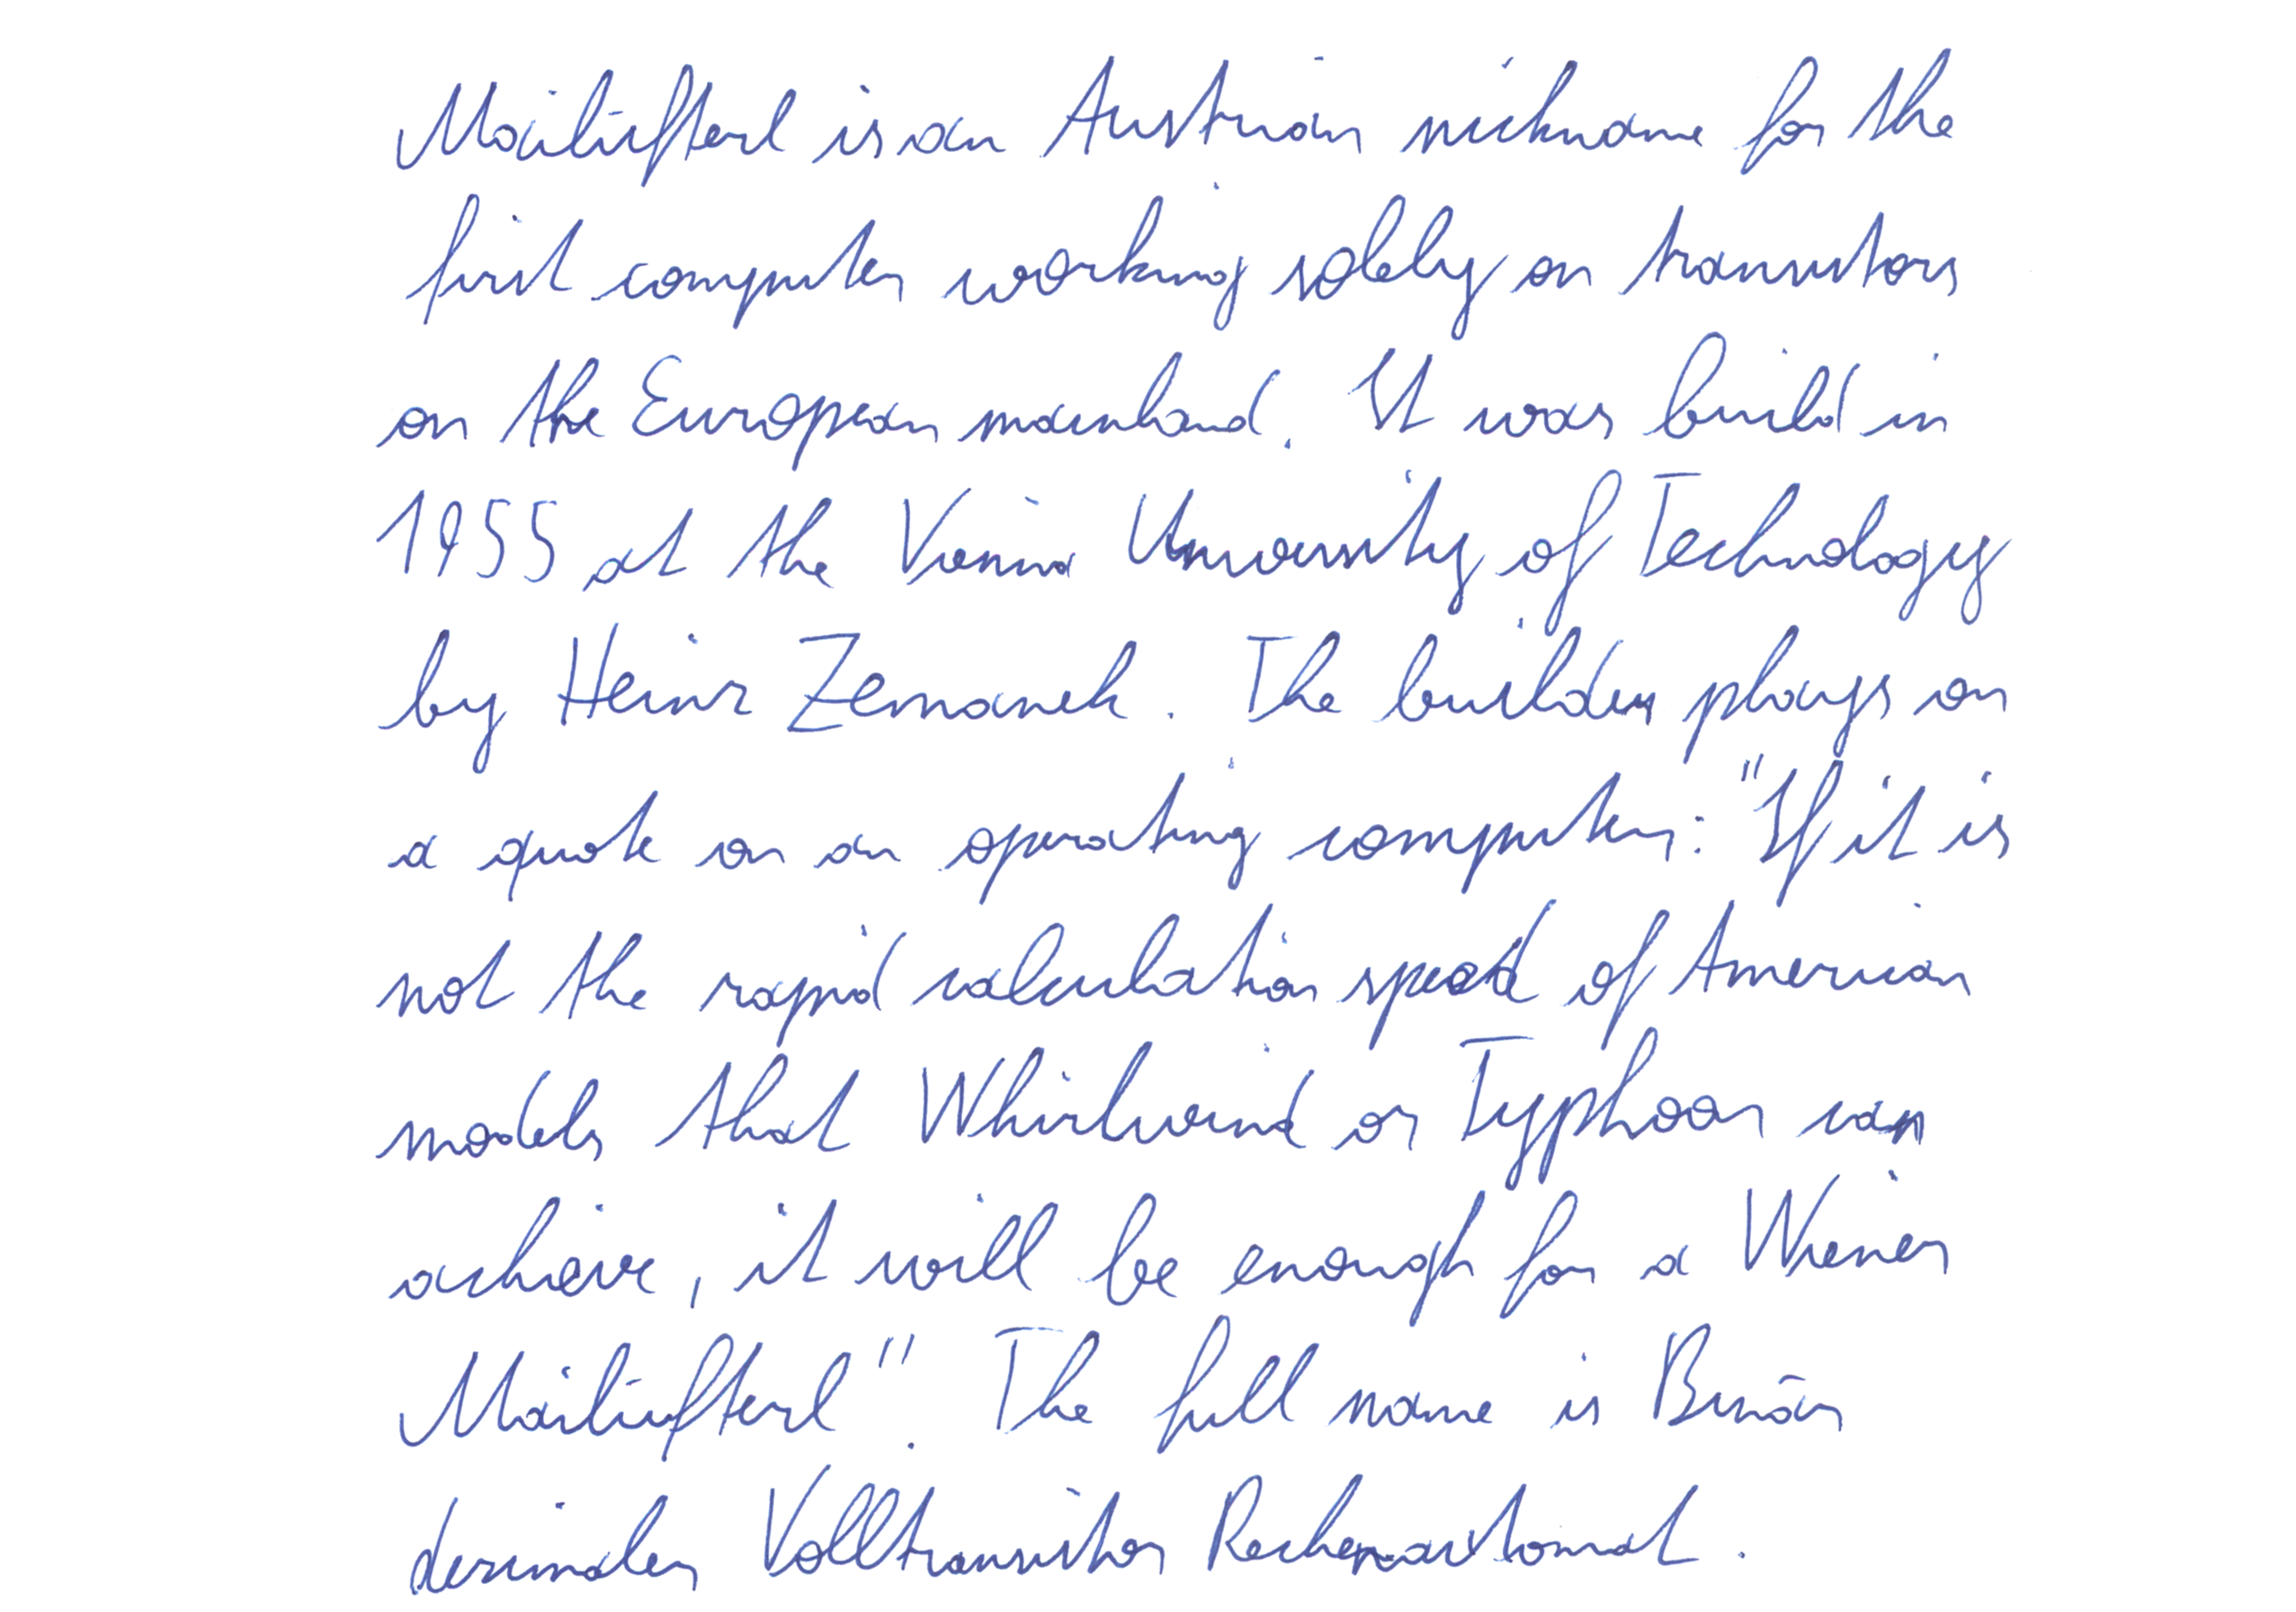 Mailüfterl is an Austrian nickname for the
first computer working solely on transistors
on the European mainland. It was build in
1955 at the Vienna University of Technology
by Heinz Zemanek. The builder plays on
a quote on an operating computer: "If it is
not the rapid calculation speed of American
models that Whirlwind or Typhoon can
achieve, it will be enough for a Wiener
Mailüfterl". The full name is Binär
dezimaler Volltransistor Rechenautomat.